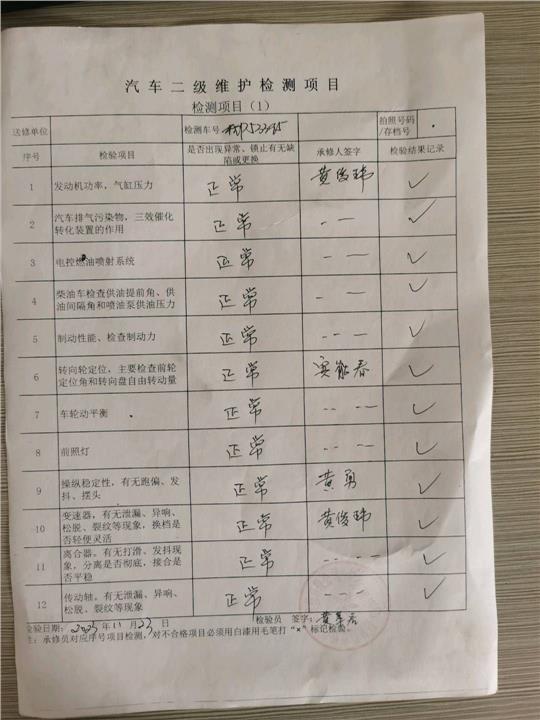 汽车二级维护检测项目
检测项目（1）
送修单位 检测车号 拍照号码/存档号
序号 检验项目 是否出现异常、锁止有无缺陷或更换 承修人签字 检验结果记录
1 发动机功率，气缸压力 正常 黄俊玮 ✓
2 汽车排气污染物，三效催化转化装置的作用 正常 — — ✓
3 电控燃油喷射系统 正常 — — ✓
4 柴油车检查供油提前角、供油间隔角和喷油泵供油压力 正常 — — ✓
5 制动性能、检查制动力 正常 — — — ✓
6 转向轮定位，主要检查前轮定位角和转向盘自由转动量 正常 ✓
7 车轮动平衡 正常 — — — ✓
8 前照灯 正常 — — — ✓
9 操纵稳定性，有无跑偏、发抖、摆头 正常 黄勇 ✓
10 变速器，有无泄漏、异响、松脱、裂纹等现象，换档是否轻便灵活 正常 黄俊玮 ✓
11 离合器，有无打滑、发抖现象，分离是否彻底，接合是否平稳 正常 — — — ✓
12 传动轴，有无泄漏、异响、松脱、裂纹等现象 正常 — — — ✓
检验日期：2023年11月23日 检验员 签字：
注：承修员对应序号项目检测，对不合格项目必须用白漆用毛笔打“×”标记检验。